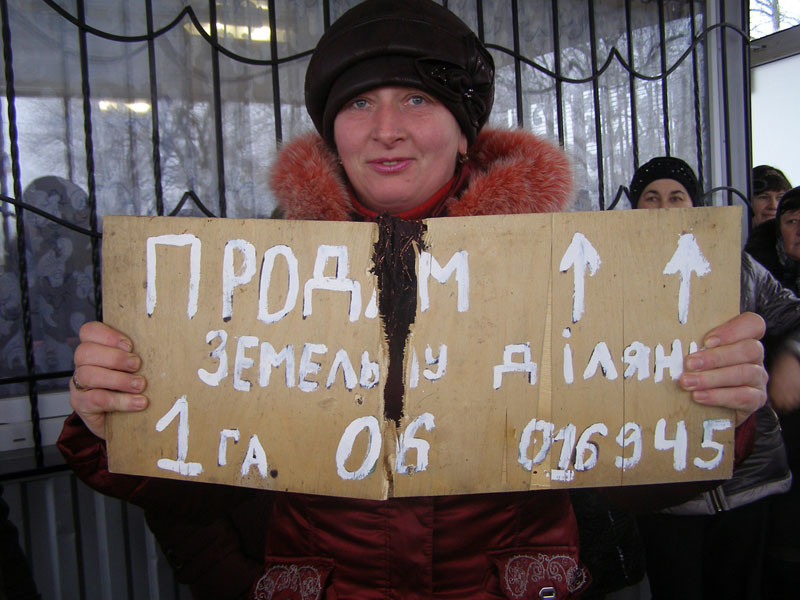 ПРОДАМ ↑ ↑
ЗЕМЕЛЬНУ ДІЛЯНКУ
1 га 06 016945